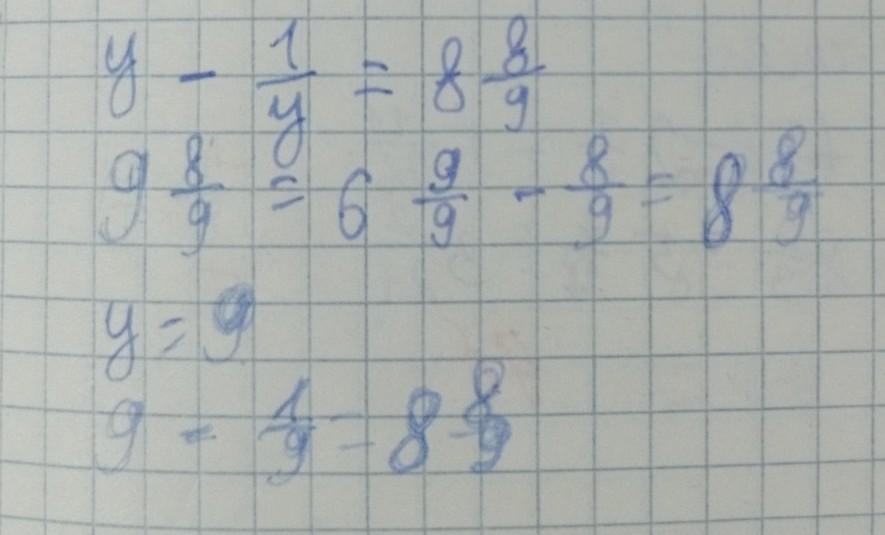 y - 1/y = 8 8/9
9 8/9 = 6 9/9 - 8/9 = 8 8/9
y = 9
9 - 1/9 = 8 8/9